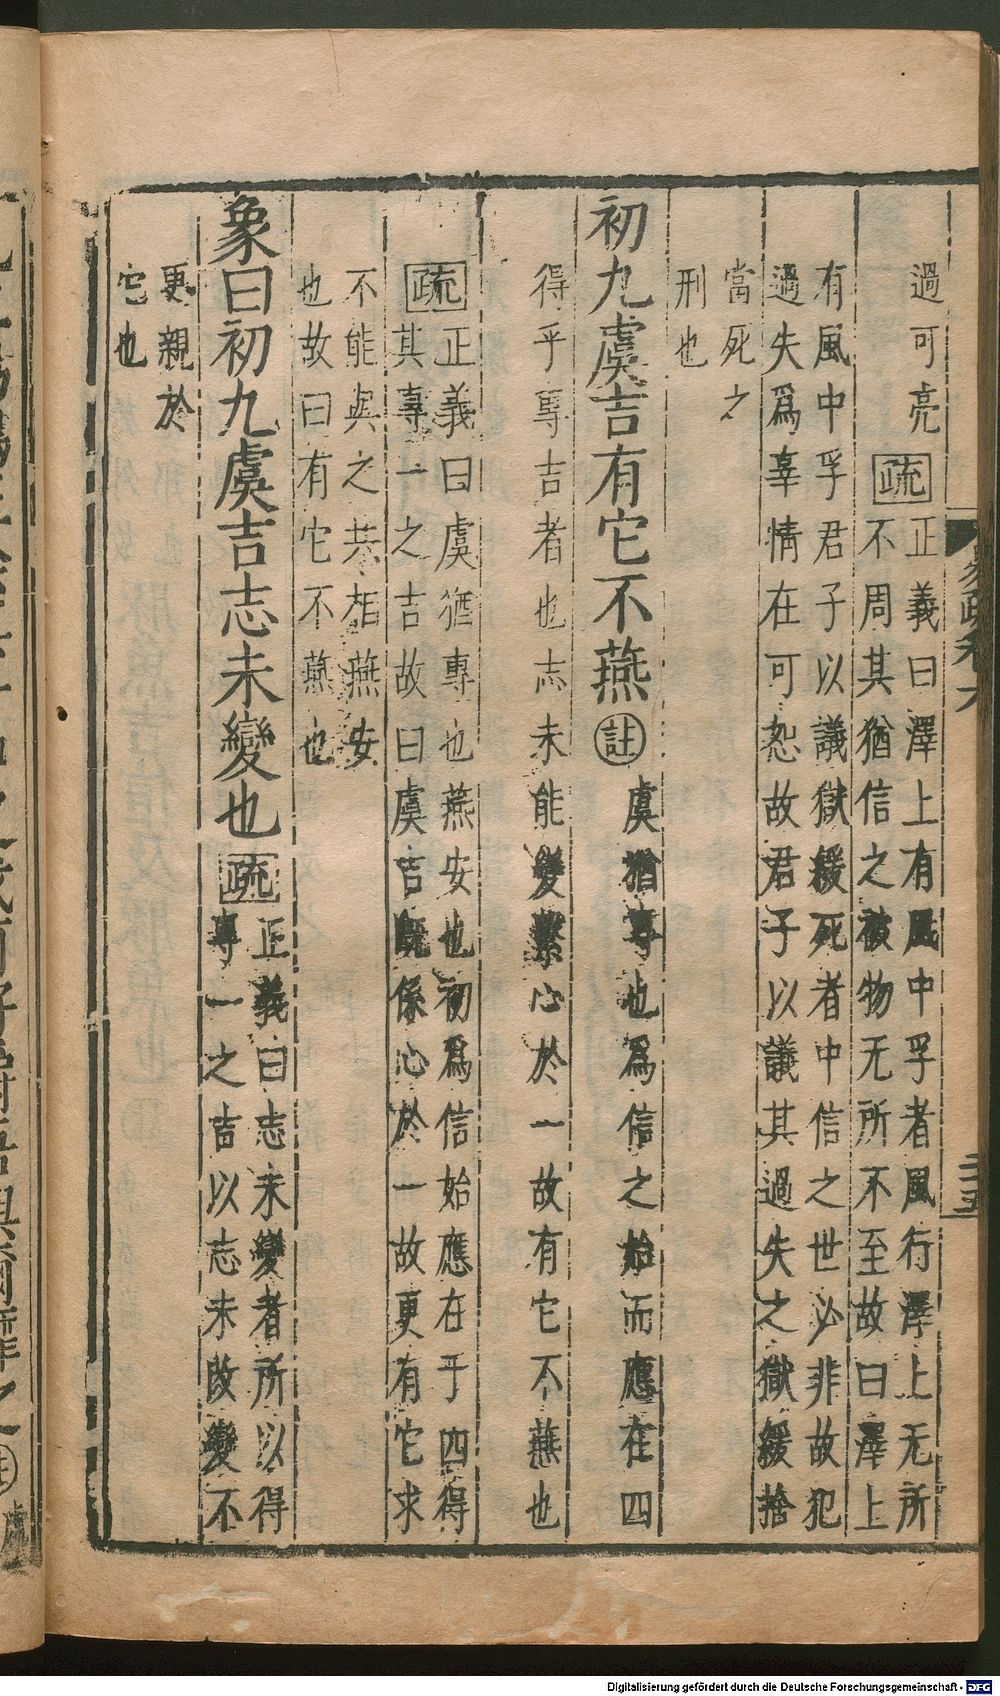 過可亮疏正義曰澤上有風中孚者風行澤上无所
不周其猶信之被物无所不至故曰澤上
有風中孚君子以議獄緩死者中信之世必非故犯
過失爲辜情在可恕故君子以議其過失之獄緩捨
當死之
刑也
初九虞吉有它不燕註虞猶專也爲信之始而應在四
得乎專吉者也志未能變繫心於一故有它不燕也
疏正義曰虞猶專也燕安也初爲信始應在于四得
其專一之吉故曰虞吉既係心於一故更有它求
不能與之共相燕安
也故曰有它不燕也
象曰初九虞吉志未變也疏正義曰志未變者所以得
專一之吉以志未改變不
更親於
它也
易疏卷六
二十五
Digitalisierung gefördert durch die Deutsche Forschungsgemeinschaft - DFG